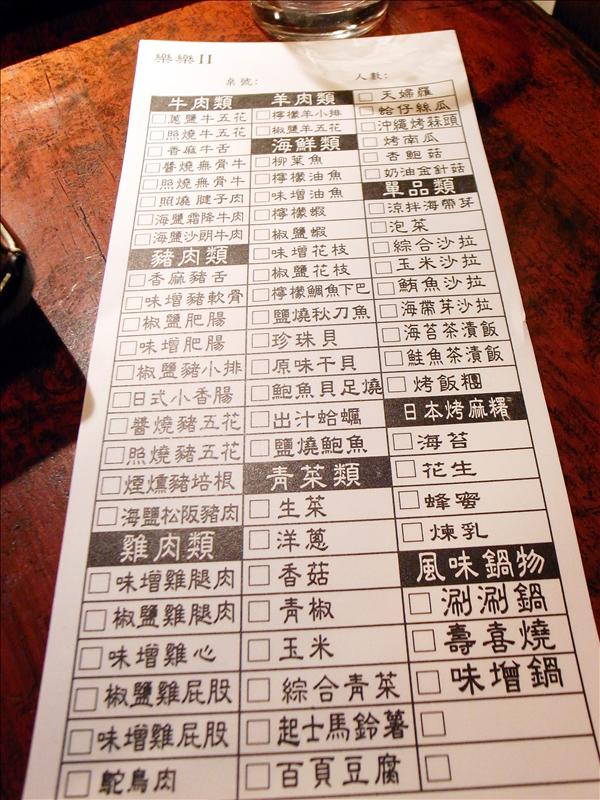 樂樂II
桌號：
人數：
牛肉類
□蔥鹽牛五花
□照燒牛五花
□香麻牛舌
□醬燒無骨牛
□照燒無骨牛
□照燒腱子肉
□海鹽霜降牛肉
□海鹽沙朗牛肉
豬肉類
□香麻豬舌
□味增豬軟骨
□椒鹽肥腸
□味增肥腸
□椒鹽豬小排
□日式小香腸
□醬燒豬五花
□照燒豬五花
□煙燻豬培根
□海鹽松阪豬肉
雞肉類
□味增雞腿肉
□椒鹽雞腿肉
□味增雞心
□椒鹽雞屁股
□味增雞屁股
□鴕鳥肉
羊肉類
□檸檬羊小排
□椒鹽羊五花
海鮮類
□柳葉魚
□檸檬油魚
□味增油魚
□檸檬蝦
□椒鹽蝦
□味增花枝
□椒鹽花枝
□檸檬鯛魚下巴
□鹽燒秋刀魚
□珍珠貝
□原味干貝
□鮑魚貝足燒
□出汁蛤蠣
□鹽燒鮑魚
青菜類
□生菜
□洋蔥
□香菇
□青椒
□玉米
□綜合青菜
□起士馬鈴薯
□百頁豆腐
□天婦羅
□蛤仔絲瓜
□沖繩烤蒜頭
□烤南瓜
□杏鮑菇
□奶油金針菇
單品類
□涼拌海帶芽
□泡菜
□綜合沙拉
□玉米沙拉
□鮪魚沙拉
□海帶芽沙拉
□海苔茶漬飯
□鮭魚茶漬飯
□烤飯糰
日本烤麻糬
□海苔
□花生
□蜂蜜
□煉乳
風味鍋物
□涮涮鍋
□壽喜燒
□味增鍋